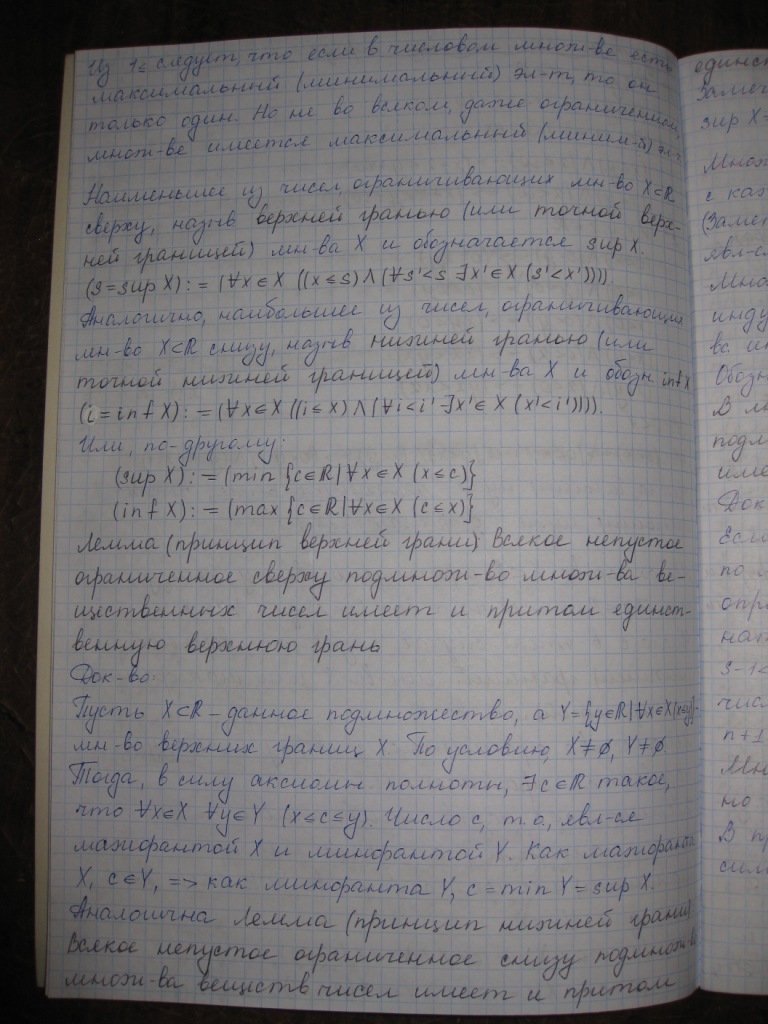 Из 1≤ следует, что если в числовом множ-ве есть
максимальный (минимальный) эл-т, то он
только один. Но не во всяком, даже ограниченном
множ-ве имеется максимальный (миним-й) эл-т.
Наименьшее из чисел, ограничивающих мн-во X⊂ℝ
сверху, назыв верхней гранью (или точной верх-
ней границей) мн-ва X и обозначается sup X.
(s=sup X):=(∀x∈X ((x≤s)∧(∀s'<s ∃x'∈X (s'<x')))).
Аналогично, наибольшее из чисел, ограничивающих
мн-во X⊂ℝ снизу, назыв нижней гранью (или
точной нижней границей) мн-ва X и обозн inf X
(i=inf X):=(∀x∈X ((i≤x)∧(∀i<i' ∃x'∈X (x'<i')))).
Или, по-другому:
(sup X):=(min {c∈ℝ|∀x∈X (x≤c)}
(inf X):=(max {c∈ℝ|∀x∈X (c≤x)}
Лемма (принцип верхней грани) Всякое непустое
ограниченное сверху подмнож-во множ-ва ве-
щественных чисел имеет и притом единст-
венную верхнюю грань
Док-во:
Пусть X⊂ℝ – данное подмножество, а Y={y∈ℝ|∀x∈X(x≤y)}-
мн-во верхних границ X. По условию, X≠∅, Y≠∅.
Тогда, в силу аксиомы полноты, ∃c∈ℝ такое,
что ∀x∈X ∀y∈Y (x≤c≤y). Число c, т.о, явл-ся
мажорантой X и минорантой Y. Как мажоранта
X, c∈Y, => как миноранта Y, c=min Y=sup X.
Аналогична Лемма (принцип нижней грани)
Всякое непустое ограниченное снизу подмнож-во
множ-ва веществ чисел имеет и притом
единст
Замеч
sup X=
Множ
с каж
(Замет
явл-ся
Мно
инду
Обозн
В мн
подм
име
Док-
Если
по
опр
на
s-1<
чис
n+1
Мн
но
В пр
сил